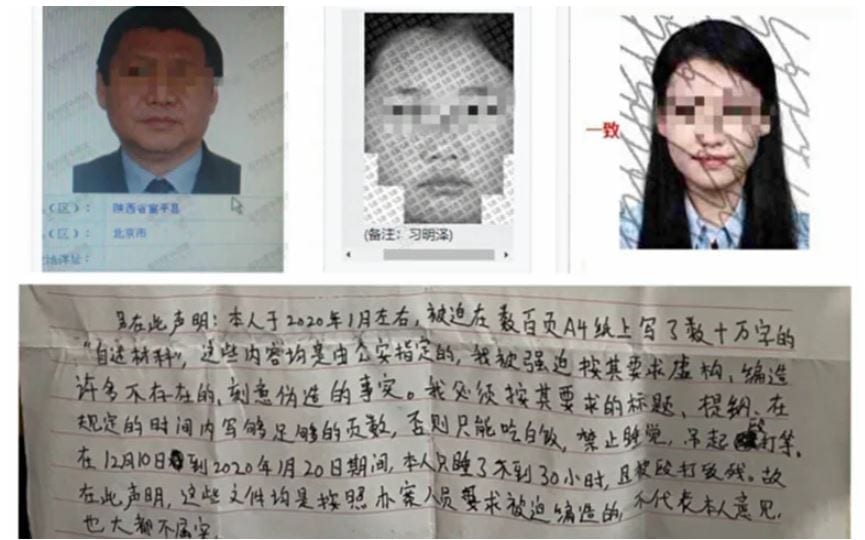 (区): 陕西省富平县
(区): 北京市
(备注:习明泽)
一致
另在此声明:本人于2020年1月左右,被迫在数百页A4纸上写了数十万字的
“自述材料”,这些内容均是由公安指定的,我被强迫按其要求虚构、编造
许多不存在的、刻意伪造的事实。我必须按其要求的标题、提纲、在
规定的时间内写够足够的页数,否则只能吃白饭,禁止睡觉,吊起殴打等。
在12月10日到2020年1月20日期间,本人只睡了不到30小时,且被殴打致残。故
在此声明,这些文件均是按照办案人员要求被迫编造的,不代表本人意见,
也大都不属实。